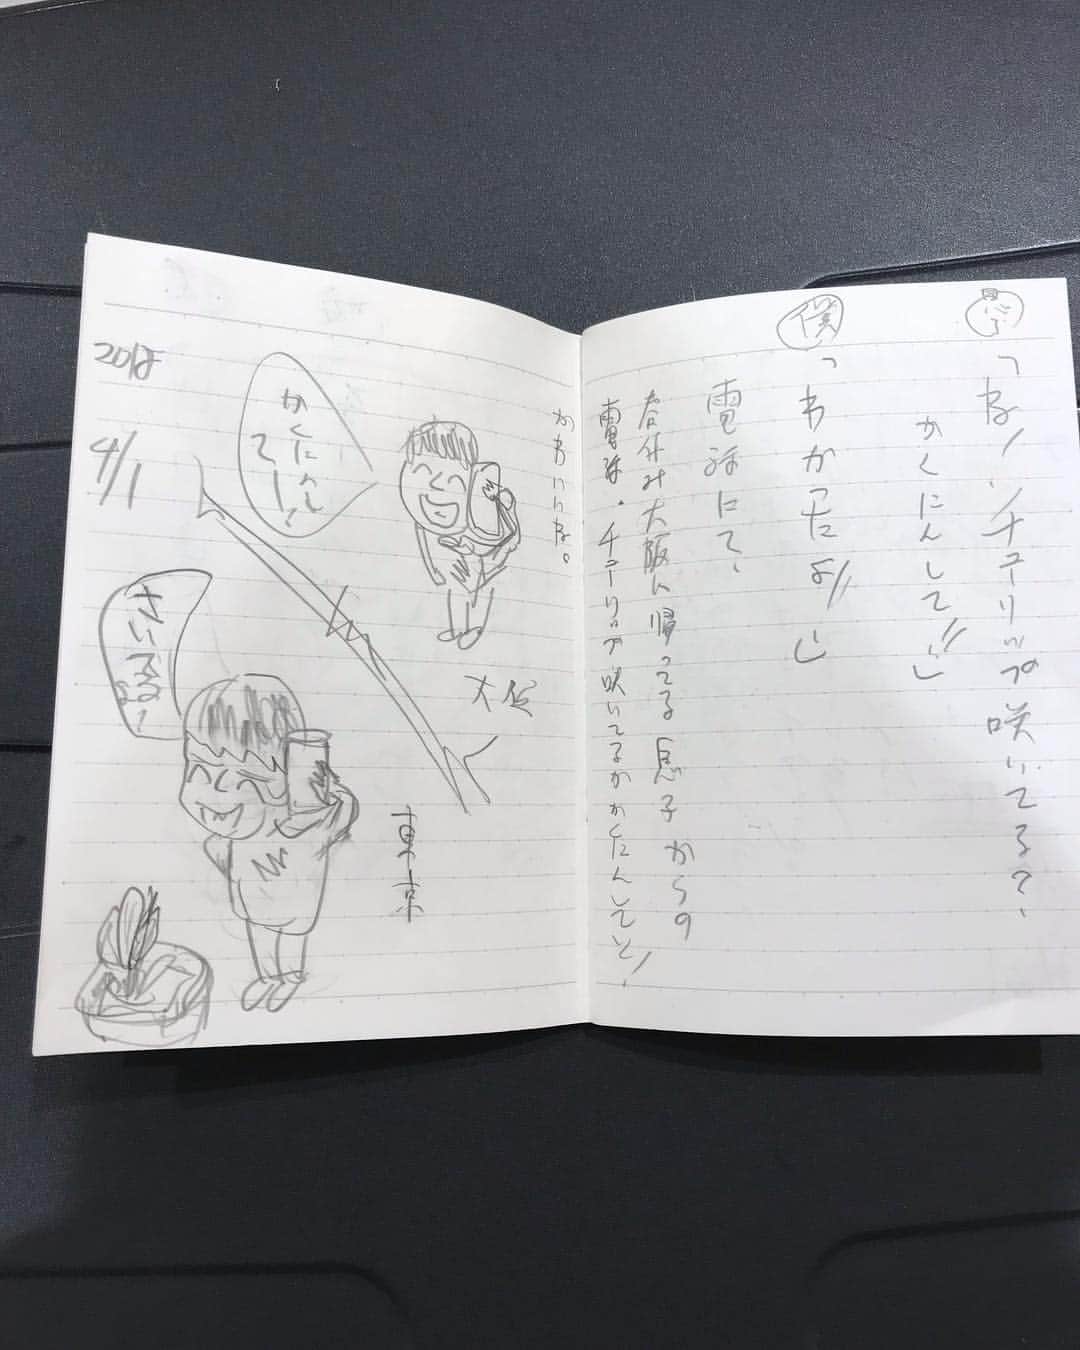 息子
「ね！チューリップ咲いてる？
かくにんして!!」
僕
「わかったよ!!」
電話にて、
春休み大阪に帰ってる息子からの
電話。チューリップ咲いてるかかくにんしてと！
かわいいな。
大阪
かくにんし
てー！
東京
さいてるよ！
2018
4/1